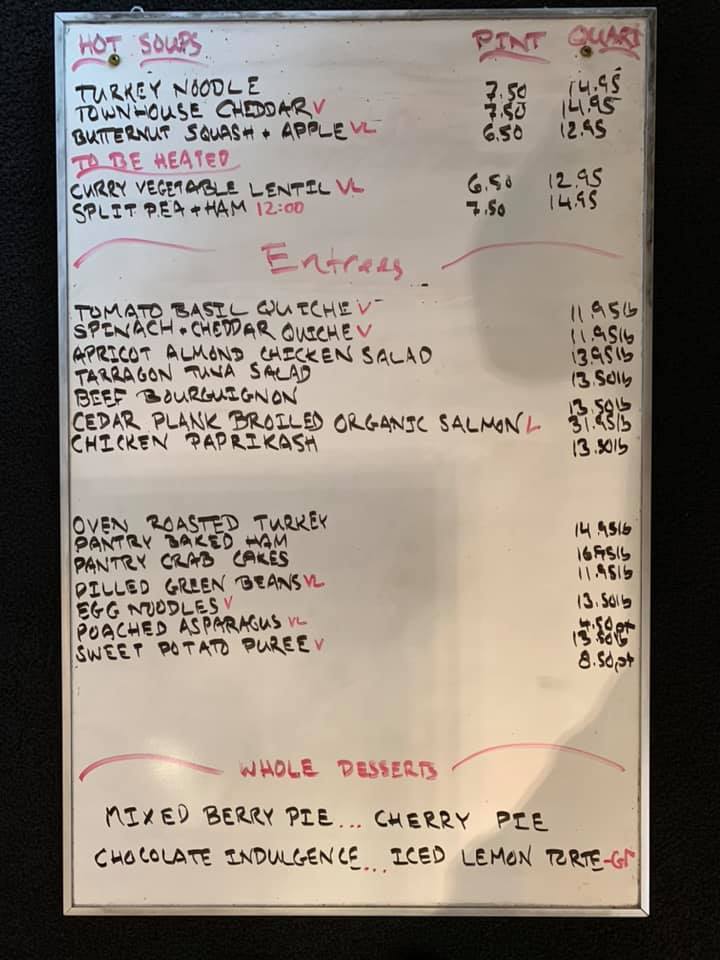 HOT SOUPS PINT QUART
TURKEY NOODLE 7.50 14.95
TOWNHOUSE CHEDDAR V 7.50 14.95
BUTTERNUT SQUASH + APPLE VL 6.50 12.95
TO BE HEATED
CURRY VEGETABLE LENTIL VL 6.50 12.95
SPLIT PEA + HAM 12:00 7.50 14.95
Entrees
TOMATO BASIL QUICHE V 11.95lb
SPINACH + CHEDDAR QUICHE V 11.95lb
APRICOT ALMOND CHICKEN SALAD 13.95lb
TARRAGON TUNA SALAD 13.50lb
BEEF BOURGUIGNON 13.50lb
CEDAR PLANK BROILED ORGANIC SALMON L 31.95lb
CHICKEN PAPRIKASH 13.50lb
OVEN ROASTED TURKEY 14.95lb
PANTRY BAKED HAM
PANTRY CRAB CAKES 11.95lb
DILLED GREEN BEANS VL 13.50lb
EGG NOODLES V 4.50pt
POACHED ASPARAGUS VL 13.50lb
SWEET POTATO PUREE V 8.50pt
WHOLE DESSERTS
MIXED BERRY PIE... CHERRY PIE
CHOCOLATE INDULGENCE... ICED LEMON TORTE-GF